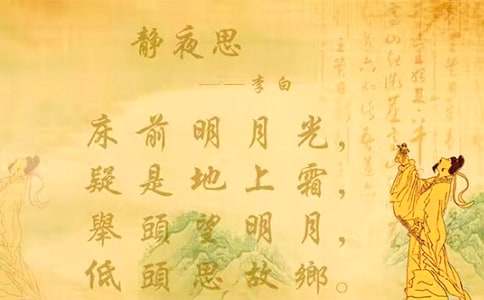 静夜思
——李白
床前明月光，
疑是地上霜，
舉頭望明月，
低頭思故鄉。